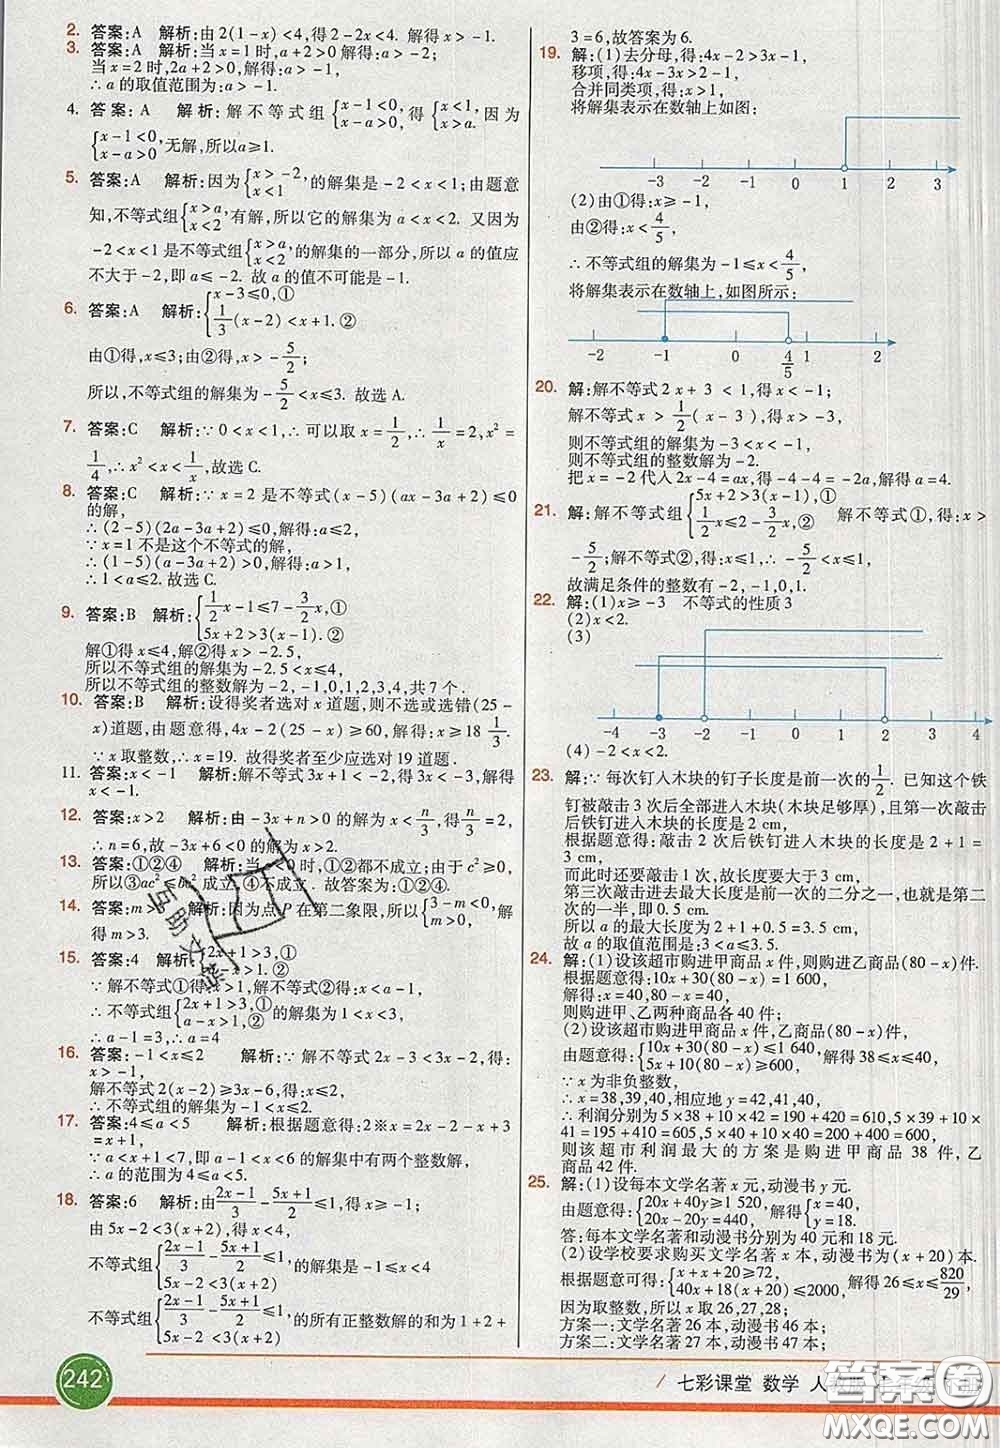 2. 答案:A 解析:由2(1-x)<4,得2-2x<4. 解得x>-1.
3. 答案:A 解析:当x=1时,a+2>0解得:a>-2;
当x=2时,2a+2>0,解得:a>-1,
∴a的取值范围为:a>-1.
4. 答案:A 解析:解不等式组{x-1<0, x-a>0, 得{x<1, x>a. 因为
{x-1<0, x-a>0, 无解,所以a≥1.
5. 答案:A 解析:因为{x>-2, x<1 的解集是-2<x<1;由题意
知,不等式组{x>a, x<2 有解,所以它的解集为a<x<2. 又因为
-2<x<1是不等式组{x>a, x<2 的解集的一部分,所以a的值应
不大于-2,即a≤-2. 故a的值不可能是-1.
6. 答案:A 解析:{x-3≤0,① 1/3(x-2)<x+1.②
由①得,x≤3;由②得,x>-5/2;
所以,不等式组的解集为-5/2<x≤3. 故选A.
7. 答案:C 解析:∵0<x<1,∴可以取x=1/2,∴1/x=2,x²=
1/4,∴x²<x<1/x,故选C.
8. 答案:C 解析:∵x=2是不等式(x-5)(ax-3a+2)≤0
的解,
∴(2-5)(2a-3a+2)≤0,解得:a≤2,
∵x=1不是这个不等式的解,
∴(1-5)(a-3a+2)>0,解得:a>1,
∴1<a≤2. 故选C.
9. 答案:B 解析:{1/2x-1≤7-3/2x,① 5x+2>3(x-1).②
解①得x≤4,解②得x>-2.5,
所以不等式组的解集为-2.5<x≤4,
所以不等式组的整数解为-2,-1,0,1,2,3,4,共7个.
10. 答案:B 解析:设得奖者选对x道题,则不选或选错(25-
x)道题,由题意得,4x-2(25-x)≥60,解得:x≥18 1/3.
∵x取整数,∴x=19. 故得奖者至少应选对19道题.
11. 答案:x<-1 解析:解不等式3x+1<-2,得3x<-3,解
得x<-1.
12. 答案:x>2 解析:由-3x+n>0的解为x<n/3,得n/3=2,
∴n=6,故-3x+6<0的解为x>2.
13. 答案:①②④ 解析:当 <0时,①②都不成立;由于c²≥0,
所以③ac²≤bc²成立,④不成立. 故答案为:①②④.
14. 答案:m>3 解析:因为点P在第二象限,所以{3-m<0, m>0, 解
得m>3.
15. 答案:4 解析:{2x+1>3,① a-x>1,②
∵解不等式①得:x>1,解不等式②得:x<a-1,
∴不等式组{2x+1>3,① a-x>1,② 的解集为1<x<3,
∴a-1=3,∴a=4.
16. 答案:-1<x≤2 解析:∵解不等式2x-3<3x-2,得:
x>-1,
解不等式2(x-2)≥3x-6,得:x≤2,
∴不等式组的解集为-1<x≤2.
17. 答案:4≤a<5 解析:根据题意得:2※x=2x-2-x+3
=x+1,
∵a<x+1<7,即a-1<x<6的解集中有两个整数解,
∴a的范围为4≤a<5.
18. 答案:6 解析:由(2x-1)/3-(5x+1)/2≤1,得x≥-1,
由5x-2<3(x+2),得x<4,
不等式组{(2x-1)/3-(5x+1)/2≤1, 5x-2<3(x+2) 的解集是-1≤x<4
不等式组{(2x-1)/3-(5x+1)/2≤1, 5x-2<3(x+2) 的所有正整数解的和为1+2+
3=6,故答案为6.
19. 解:(1)去分母,得:4x-2>3x-1,
移项,得:4x-3x>2-1,
合并同类项,得:x>1,
将解集表示在数轴上如图:
-3 -2 -1 0 1 2 3
(2)由①得:x≥-1,
由②得:x<4/5,
∴不等式组的解集为-1≤x<4/5,
将解集表示在数轴上,如图所示:
-2 -1 0 4/5 1 2
20. 解:解不等式2x+3<1,得x<-1;
解不等式x>1/2(x-3),得x>-3,
则不等式组的解集为-3<x<-1,
则不等式组的整数解为-2.
把x=-2代入2x-4=ax,得-4-4=-2a,解得a=4.
21. 解:解不等式组{5x+2>3(x-1),① 1/2x≤2-3/2x,② 解不等式①,得:x>
-5/2;解不等式②,得:x≤1,∴-5/2<x≤1,
故满足条件的整数有-2,-1,0,1.
22. 解:(1)x≥-3 不等式的性质3
(2)x<2.
(3)
-4 -3 -2 -1 0 1 2 3 4
(4)-2<x<2.
23. 解:∵每次钉入木块的钉子长度是前一次的1/2. 已知这个铁
钉被敲击3次后全部进入木块(木块足够厚),且第一次敲击
后铁钉进入木块的长度是2 cm,
根据题意得:敲击2次后铁钉进入木块的长度是2+1=
3 cm,
而此时还要敲击1次,故长度要大于3 cm,
第三次敲击进去最大长度是前一次的二分之一,也就是第二
次的一半,即0.5 cm.
所以a的最大长度为2+1+0.5=3.5 cm.
故a的取值范围是:3<a≤3.5.
24. 解:(1)设该超市购进甲商品x件,则购进乙商品(80-x)件.
根据题意得:10x+30(80-x)=1 600,
解得:x=40,80-x=40,
则购进甲、乙两种商品各40件;
(2)设该超市购进甲商品x件,乙商品(80-x)件,
由题意得:{10x+30(80-x)≤1 640, 5x+10(80-x)≥600, 解得38≤x≤40,
∵x为非负整数,
∴x=38,39,40,相应地y=42,41,40,
∴利润分别为5×38+10×42=190+420=610,5×39+10×
41=195+410=605,5×40+10×40=200+400=600,
则该超市利润最大的方案是购进甲商品38件,乙
商品42件.
25. 解:(1)设每本文学名著x元,动漫书y元.
由题意得:{20x+40y=1 520, 20x-20y=440, 解得{x=40, y=18.
答:每本文学名著和动漫书分别为40元和18元.
(2)设学校要求购买文学名著x本,动漫书为(x+20)本.
根据题意可得:{x+x+20≥72, 40x+18(x+20)≤2000, 解得26≤x≤820/29,
因为取整数,所以x取26,27,28;
方案一:文学名著26本,动漫书46本;
方案二:文学名著27本,动漫书47本;
242
七彩课堂 数学 人
互助文档
答案圈
MXQE.COM